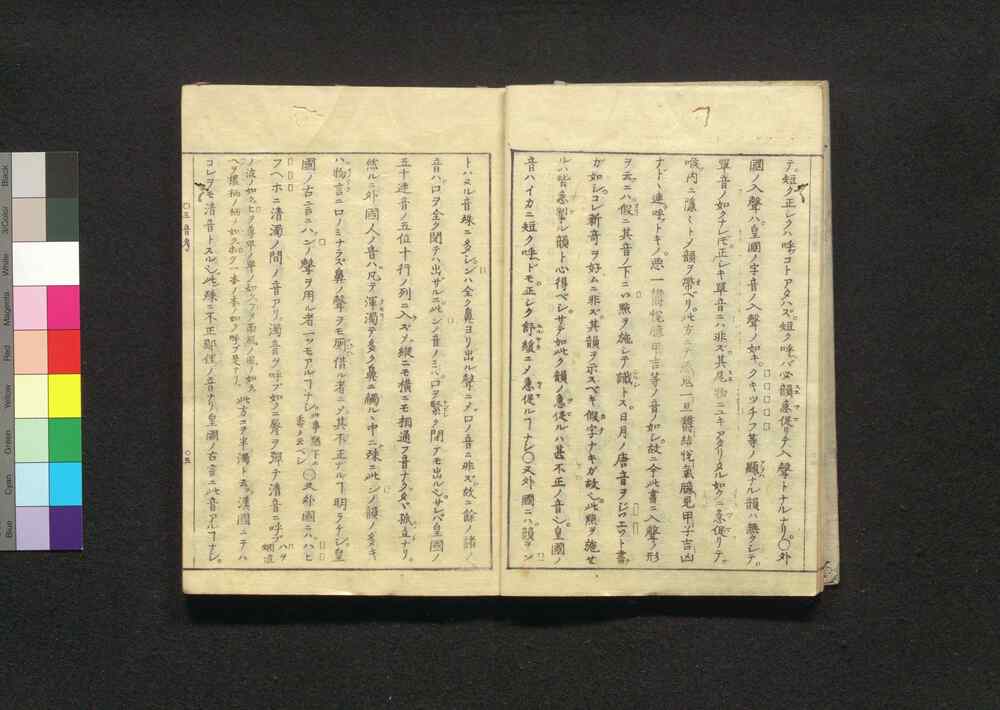 テ短ク正シクハ呼コトアタハズ。短ク呼バ必韻急促リテ入聲トナルナリ。〇外
國ノ入聲ハ。皇國ノ字音ノ入聲ノ如キ。クキツチフ等ノ顯ナル韻ハ無クシテ。
單音ノ如クナレ𪜈。正シキ單音ニハ非ズ。其尾物ニユキアタリタル如クニ急促リテ。
喉内ニ隱々トノ韻ヲ帶ベリ。此方ニテ悪鬼一旦欝結悦氣臆見甲子吉凶
ナド丶連呼トキノ。悪一欝悦臆甲吉等ノ音ノ如シ。故ニ今此書ニ入聲ノ形
ヲ云ニハ。假ニ其音ノ下ニい點ヲ施シテ識トス。日月ノ唐音ヲ書
ガ如シ。コレ新奇ヲ好ムニ非ズ。其韻ヲ示スベキ假字ナキガ故也。此點ヲ施セ
ルハ皆急促ル韻ト心得ベシ。サテ如此ク韻ノ急促ルハ甚不正ノ音也。皇國ノ
音ハイカニ短ク呼ドモ。正シク舒緩ニメ。急促ルヿナシ。〇又外國ニハ。韻ヲン
トハヌル音殊ニ多シ。ンハ全ク鼻ヨリ出ル聲ニメ。口ノ音ニ非ズ。故ニ餘ノ諸ノ
音ハ。口ヲ全ク閉テハ出ザルニ。此ンノ音ノミハ。口ヲ緊ク閉テモ出ル也。サレバ皇國ノ
五十連音ノ五位十行ノ列ニ入ズメ。縱ニモ横ニモ相通フ音ナク。只孤立ナリ。
然ルニ外國人ノ音ハ。凡テ渾濁テ多ク鼻ニ觸ル中ニ。殊ニ此ンノ韻ノ多キ
ハ。物言ニ口ノミナラズ鼻ノ聲ヲモ厠借ル者ニメ。其不正ナルヿ明ラケシ。皇
國ノ古言ニハ。ンノ聲ヲ用ル者一ツモアルヿナシ。此事猶下ニ委ク云ベシ 〇又外國ニハ。ハヒ
フヘホニ清濁ノ間ノ音アリ。濁音ヲ呼ブ如ク。ニ聲ヲ彈テ清音ニ呼ブヲ
此方ニテ半濁ト云。漢國ニテハ
コレヲモ清音トスル也。此殊ニ不正鄙俚ノ音ナリ。皇國ノ古言ニ此音アルヿナシ。
三音考
〇五
Black
3/Color
White
Magenta
Red
Yellow
Green
Cyan
Blue